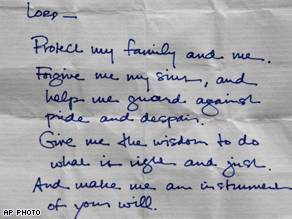 LORD—
Protect my family and me.
Forgive me my sins, and
help me guard against
pride and despair.
Give me the wisdom to do
what is right and just.
And make me an instrument
of your will.
AP PHOTO